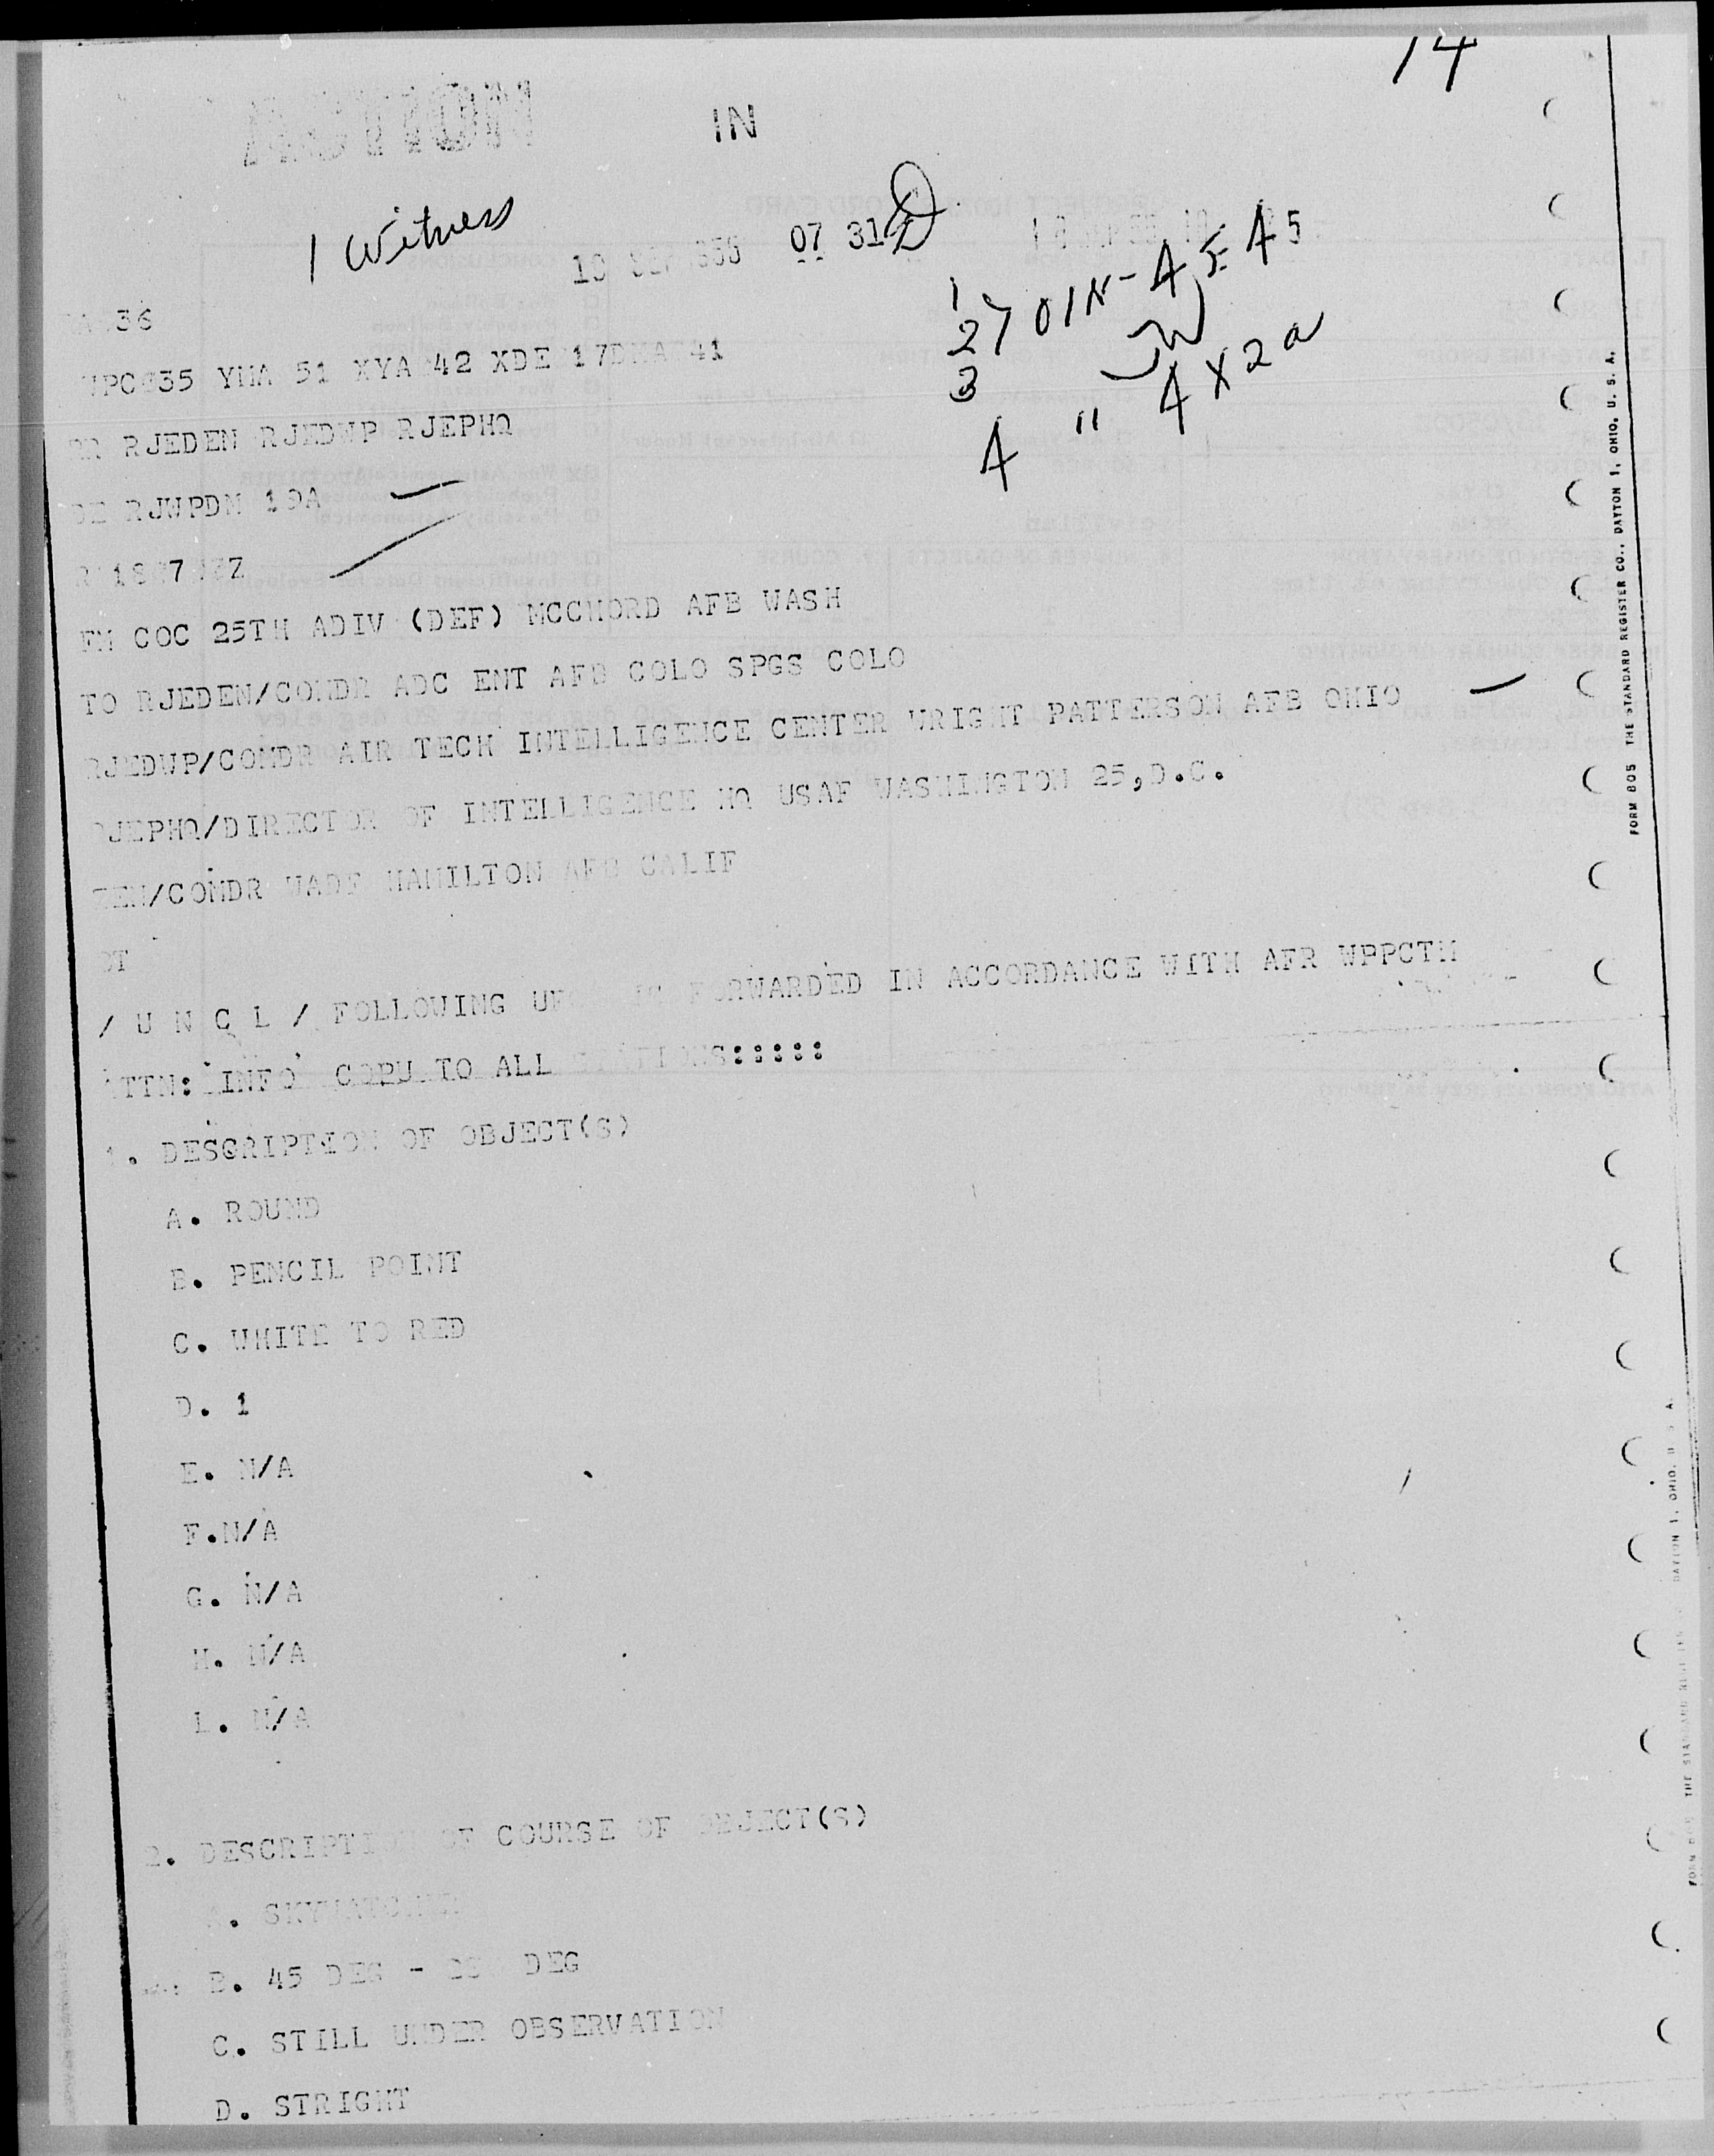 14
ACTION
IN
1 Witness
07 31
36
35 YHA 51 XYA 42 XDE 17 41
RR RJEDEN RJEDWP RJEPHQ
DE RJWPDM 19A
FM COC 25TH ADIV (DEF) MCCHORD AFB WASH
TO RJEDEN/COMDR ADC ENT AFB COLO SPGS COLO
RJEDWP/COMDR AIR TECH INTELLIGENCE CENTER WRIGHT PATTERSON AFB OHIO
RJEPHQ/DIRECTOR OF INTELLIGENCE HQ USAF WASHINGTON 25,D.C.
/COMDR WADF HAMILTON AFB CALIF
/ U N C L / FOLLOWING FORWARDED IN ACCORDANCE WITH AFR WPPCTM
ATTN: INFO COPU TO ALL STATIONS:::::
1. DESCRIPTION OF OBJECT(S)
A. ROUND
B. PENCIL POINT
C. WHITE TO RED
D. 1
E. N/A
F.N/A
G. N/A
H. N/A
L. N/A
2. DESCRIPTION OF COURSE OF OBJECT(S)
B. 45 DEG - DEG
C. STILL UNDER OBSERVATION
D. STRIGHT
FORM 805 THE STANDARD REGISTER CO., DAYTON 1, OHIO, U. S. A.